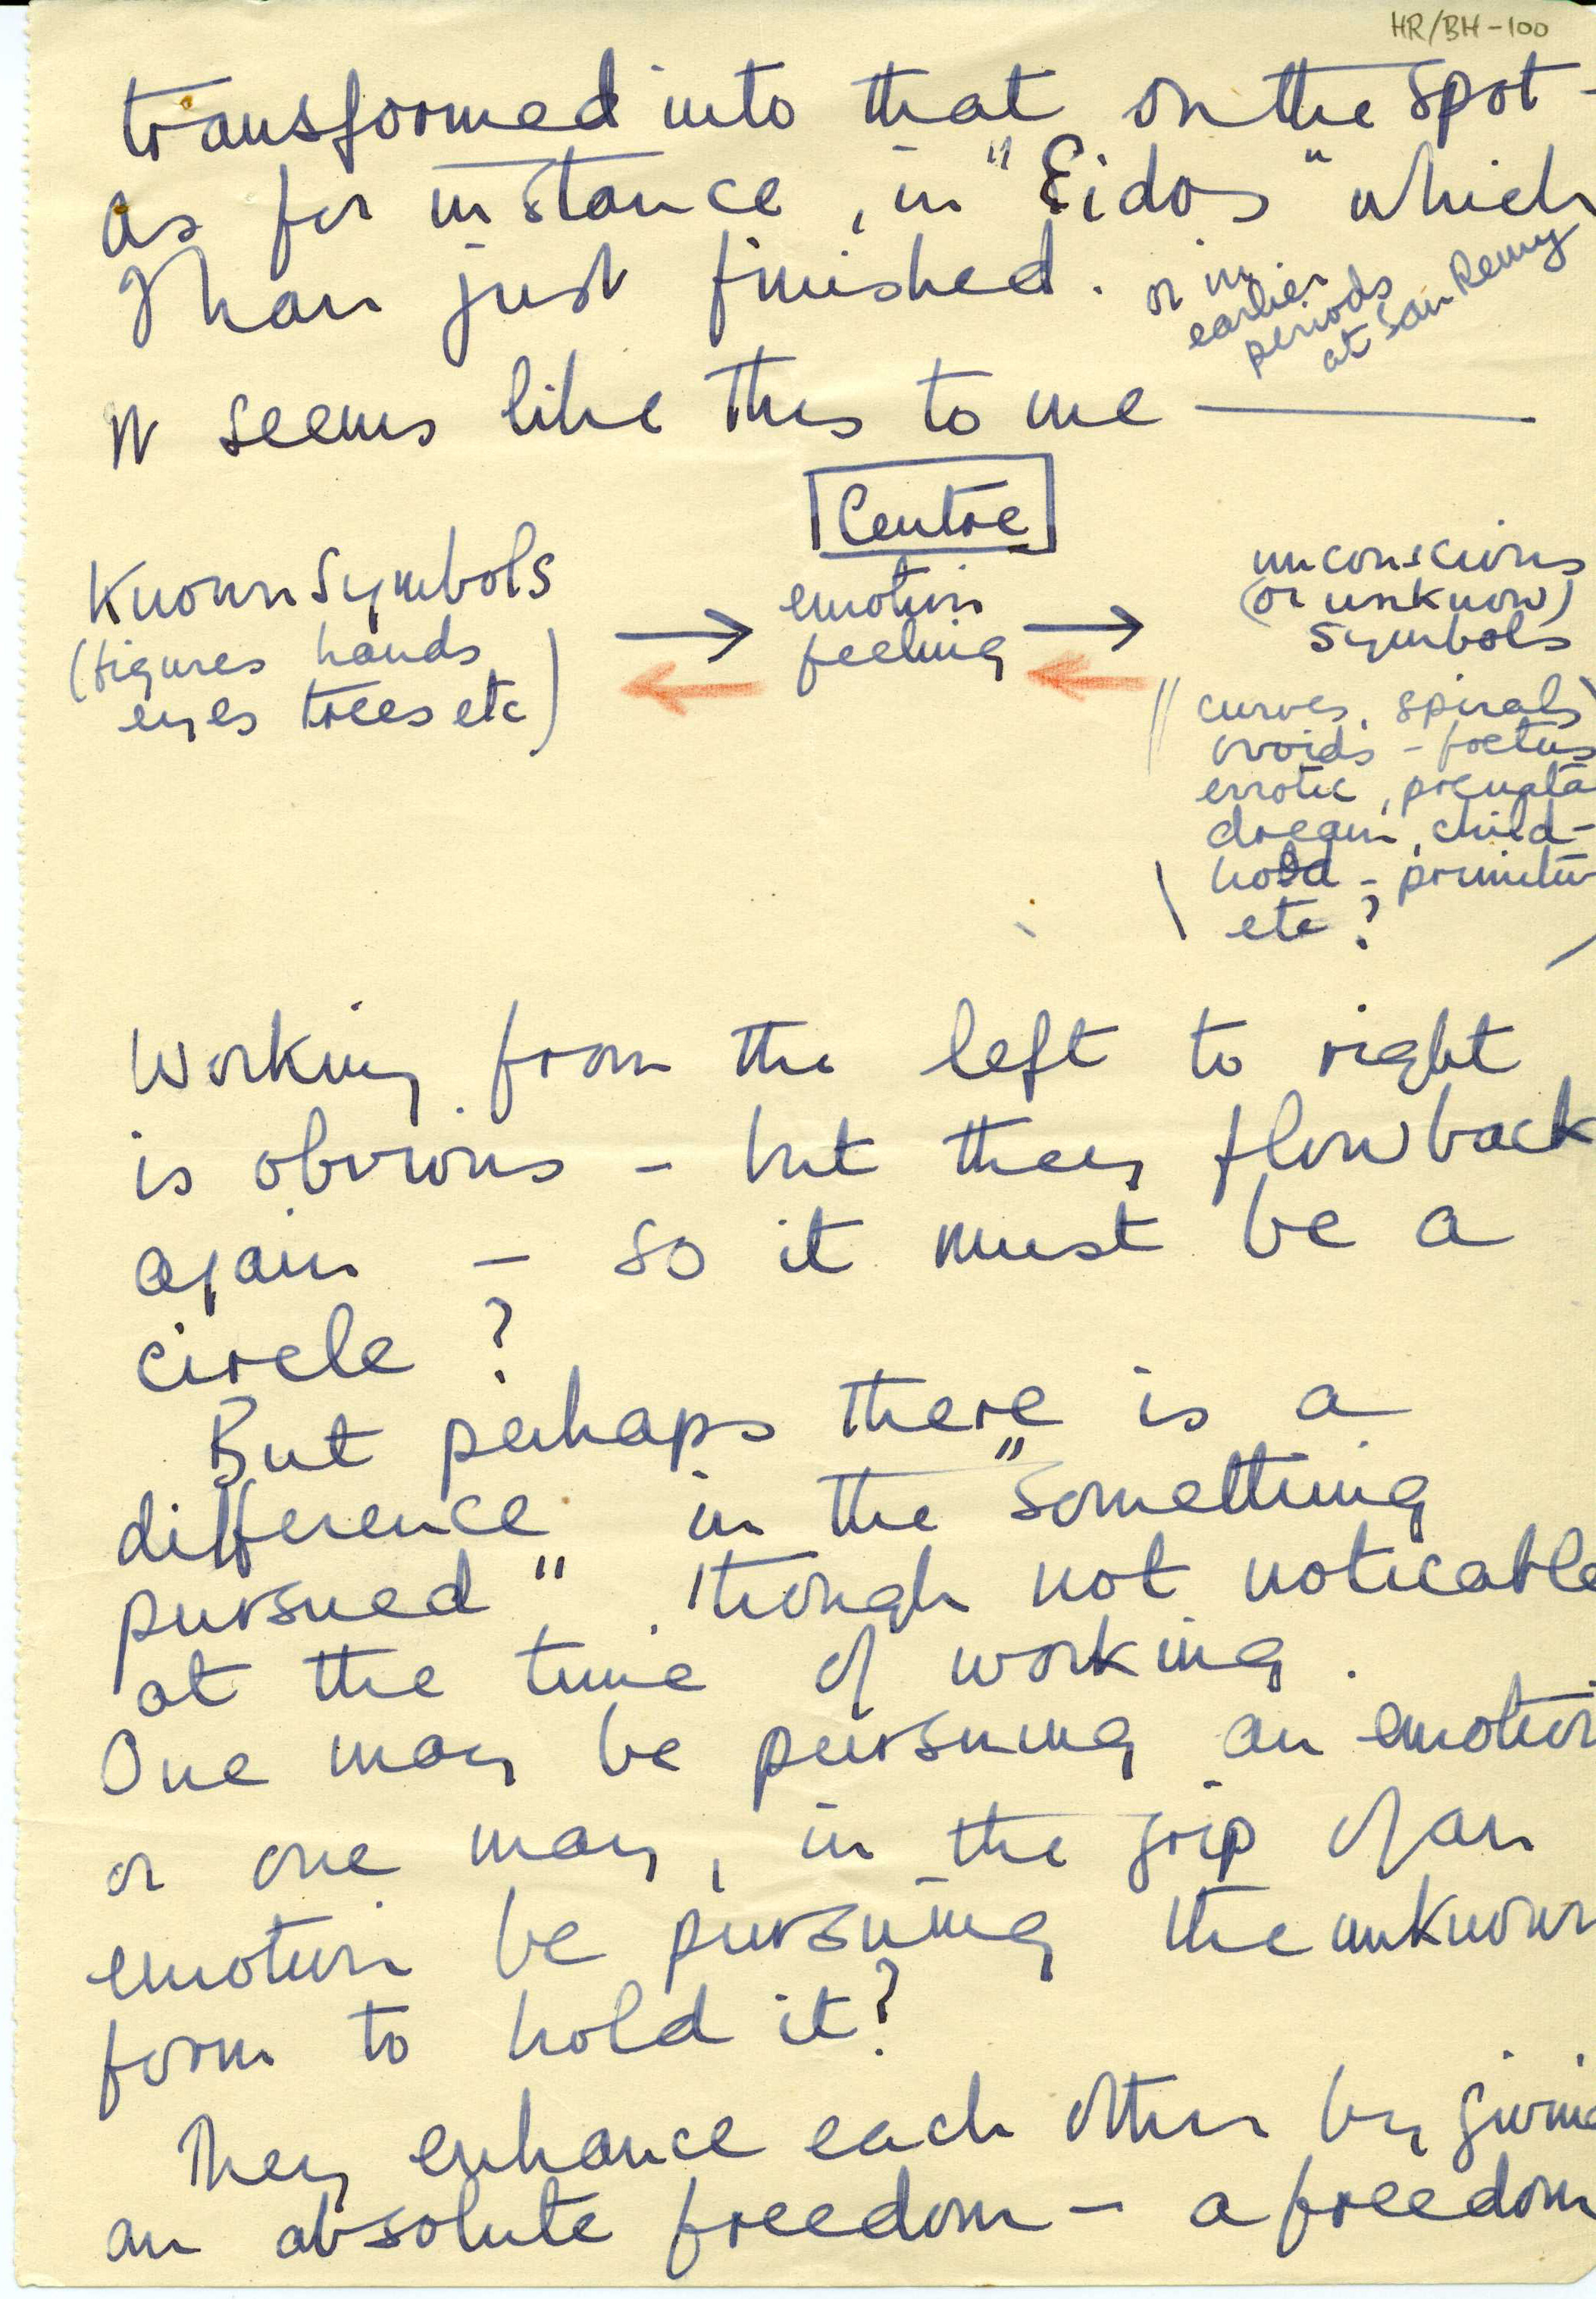 HR/BH-100
transformed into that on the spot -
as for instance, in "Eidos" which
I have just finished. or in
earlier
periods
at San Remy
It seems like this to me ———
Centre
Known Symbols
(figures hands
eyes trees etc)
→
emotion
feeling
→
unconscious
(or unknow)
symbols
←
←
(curves, spirals
ovoids - foetus
errotic, prenata
dream, child-
hood - primitiv
etc ?)
Working from the left to right
is obvious - but they flow back
again - so it must be a
circle ?
But perhaps there is a
difference in the "something
pursued" though not noticable
at the time of working.
One may be pursuing an emotion
or one may, in the grip of an
emotion be pursuing the unknown
form to hold it?
They enhance each other by giving
an absolute freedom - a freedom